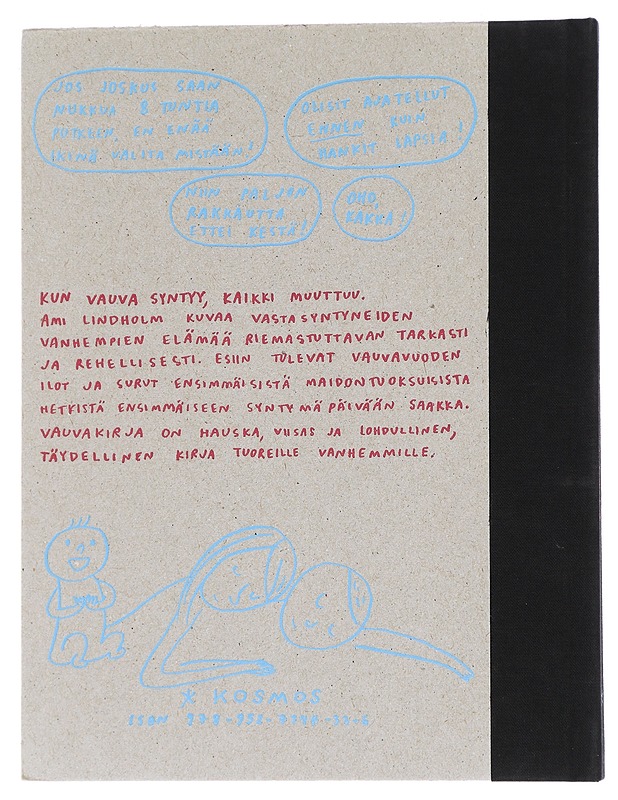 JOS JOSKUS SAAN
NUKKUA 8 TUNTIA
PUTKEEN, EN ENÄÄ
IKINÄ VALITA MISTÄÄN!
OLISIT AJATELLUT
ENNEN KUIN
HANKIT LAPSIA!
NIIN PALJON
RAKKAUTTA
ETTEI KESTÄ!
OHO,
KAKKA!
KUN VAUVA SYNTYY, KAIKKI MUUTTUU.
AMI LINDHOLM KUVAA VASTASYNTYNEIDEN
VANHEMPIEN ELÄMÄÄ RIEMASTUTTAVAN TARKASTI
JA REHELLISESTI. ESIIN TULEVAT VAUVAVUODEN
ILOT JA SURUT ENSIMMÄISISTÄ MAIDONTUOKSUISISTA
HETKISTÄ ENSIMMÄISEEN SYNTYMÄPÄIVÄÄN SAAKKA.
VAUVAKIRJA ON HAUSKA, VIISAS JA LOHDULLINEN,
TÄYDELLINEN KIRJA TUOREILLE VANHEMMILLE.
* KOSMOS
ISBN